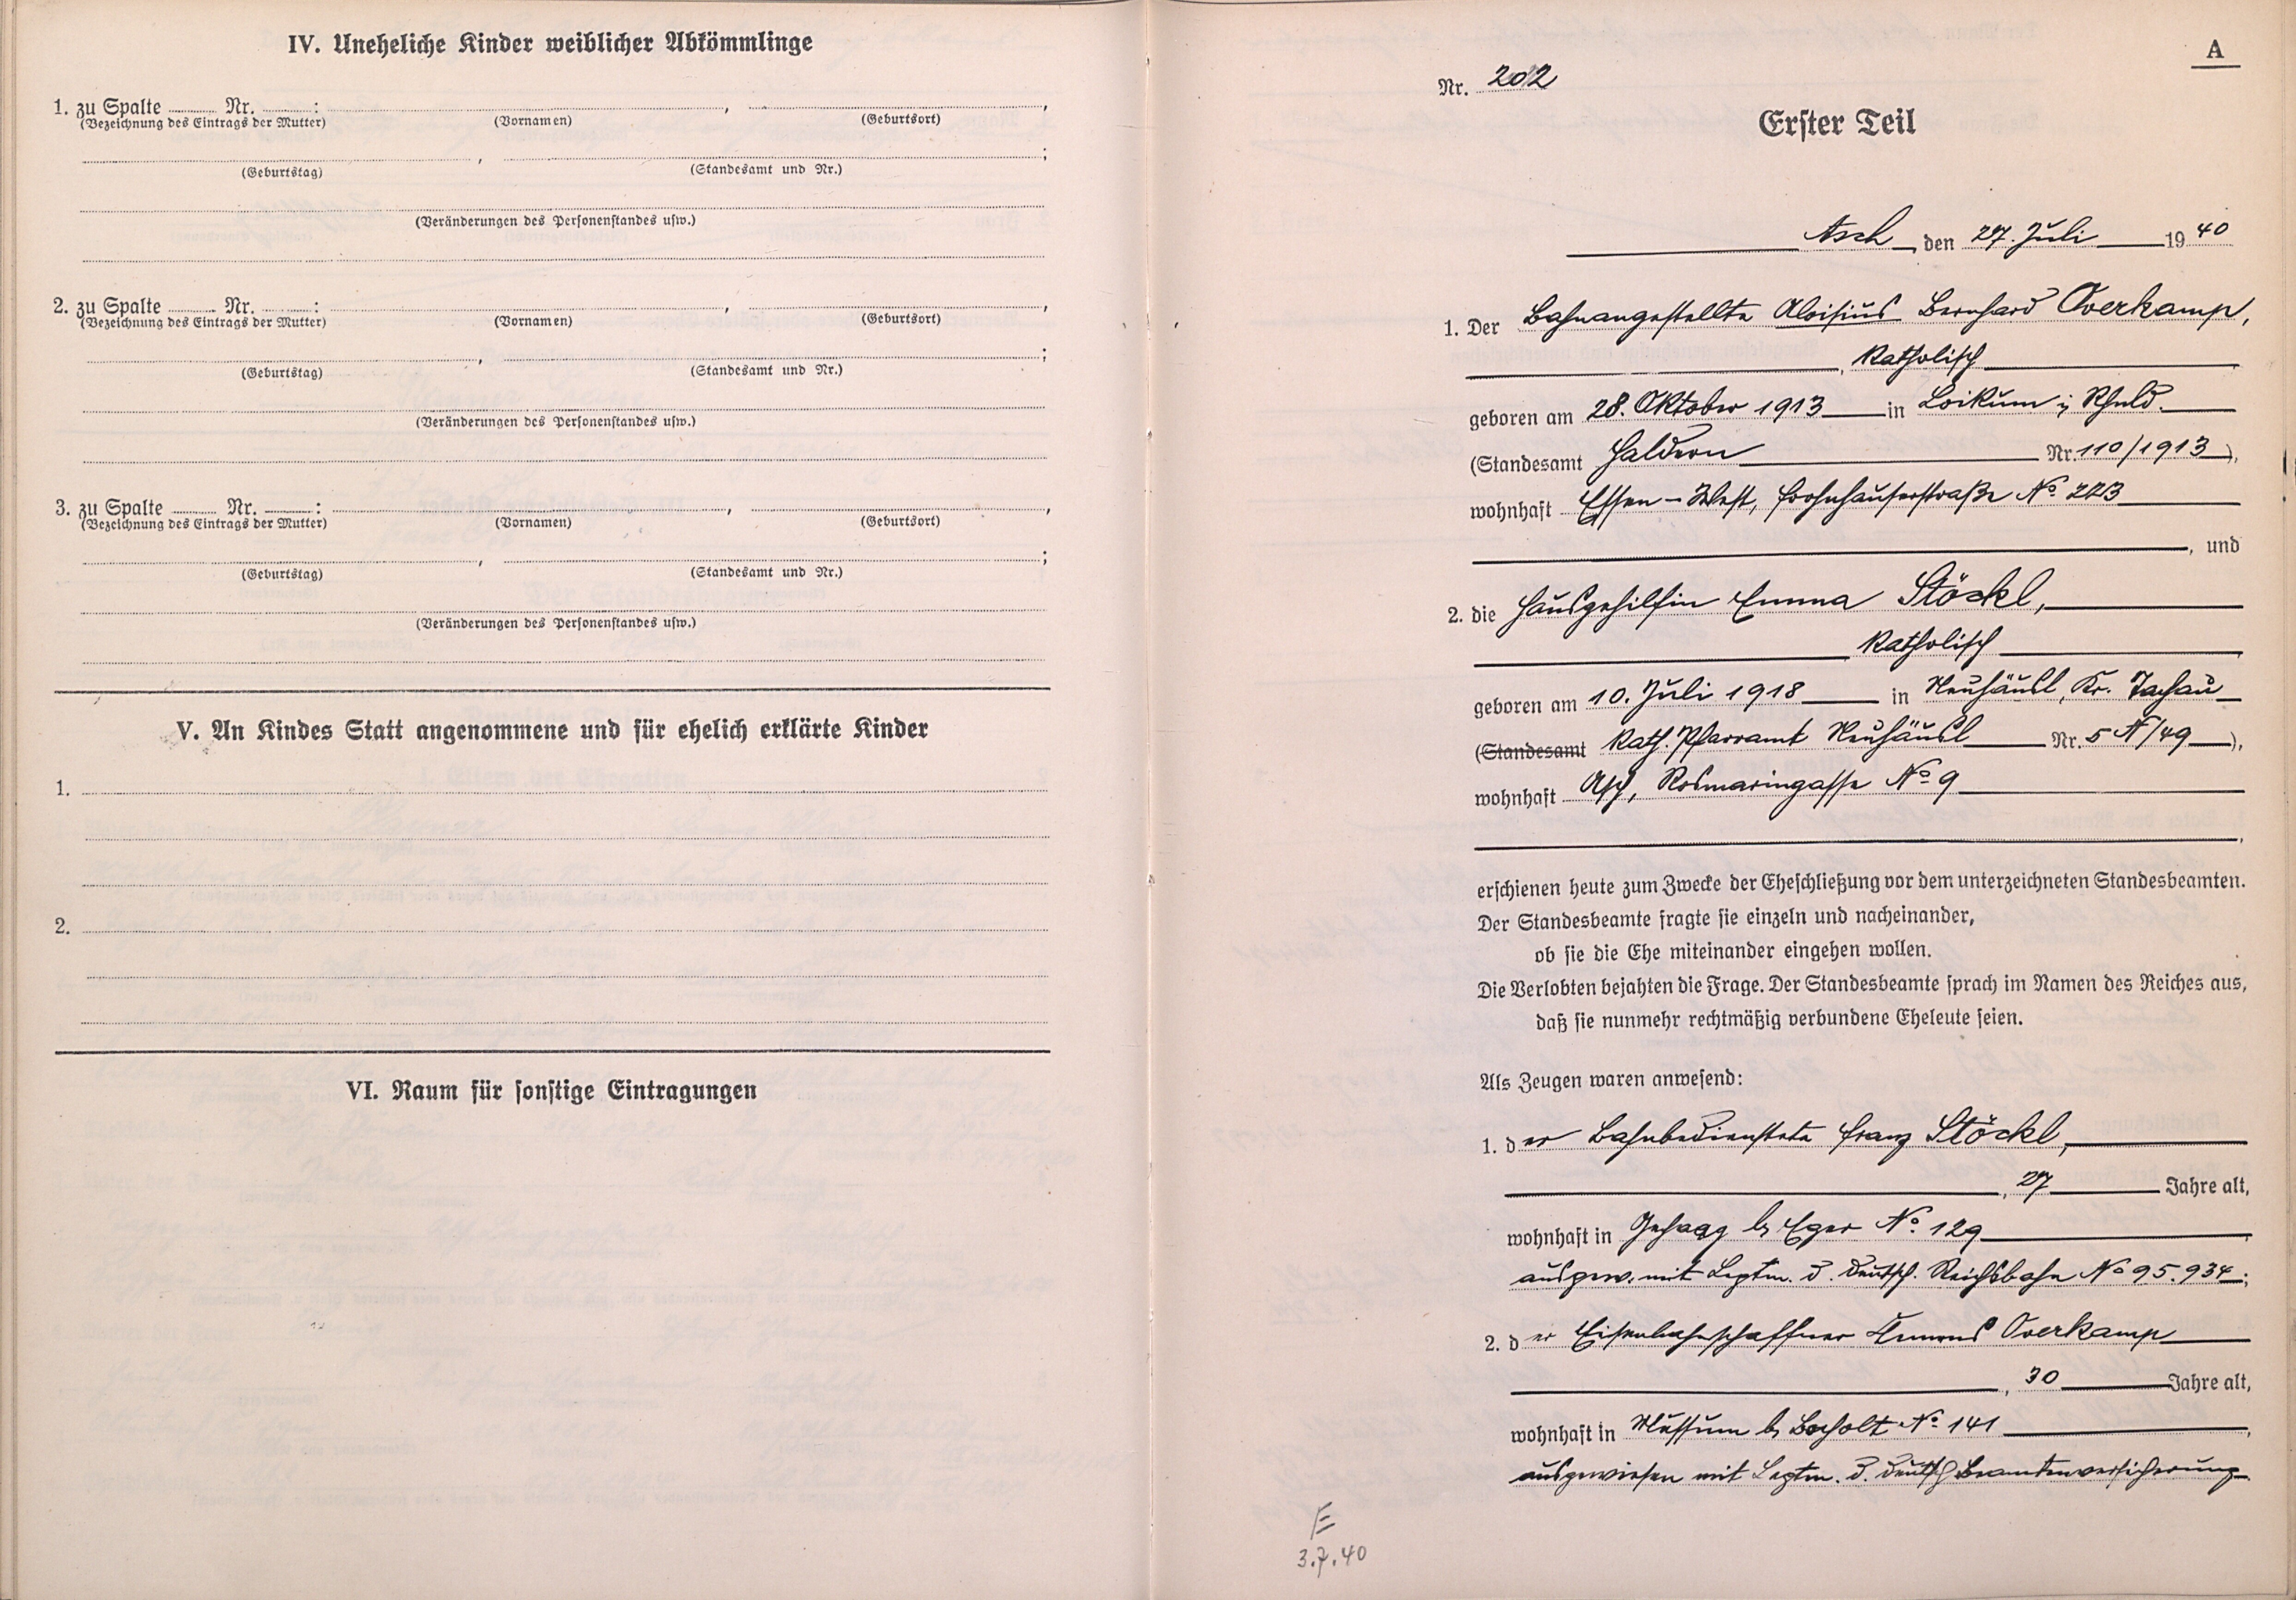 IV. Uneheliche Kinder weiblicher Abkömmlinge
1. zu Spalte ........ Nr. ........ : , ,
(Bezeichnung des Eintrags der Mutter) (Vornamen) (Geburtsort)
, ;
(Geburtstag) (Standesamt und Nr.)
(Veränderungen des Personenstandes usw.)
2. zu Spalte ........ Nr. ........ : , ,
(Bezeichnung des Eintrags der Mutter) (Vornamen) (Geburtsort)
, ;
(Geburtstag) (Standesamt und Nr.)
(Veränderungen des Personenstandes usw.)
3. zu Spalte ........ Nr. ........ : , ,
(Bezeichnung des Eintrags der Mutter) (Vornamen) (Geburtsort)
, ;
(Geburtstag) (Standesamt und Nr.)
(Veränderungen des Personenstandes usw.)
V. An Kindes Statt angenommene und für ehelich erklärte Kinder
1.
2.
VI. Raum für sonstige Eintragungen
A
Nr. 202
Erster Teil
Asch, den 27. Juli 1940
1. Der Bahnangestellte Aloisius Bernhard Overkamp,
, katholisch
geboren am 28. Oktober 1913 in Loikum i. Rhnld.
(Standesamt Haldern Nr. 110/1913),
wohnhaft Essen-West, Frohnhauserstraße No. 223
, und
2. die Hausgehilfin Emma Stöckl,
katholisch
geboren am 10. Juli 1918 in Neuhäusl, Kr. Tachau
(Standesamt Kath. Pfarramt Neuhäusl Nr. 5 N/49),
wohnhaft Asch, Rosmaringasse No. 9
,
erschienen heute zum Zwecke der Eheschließung vor dem unterzeichneten Standesbeamten.
Der Standesbeamte fragte sie einzeln und nacheinander,
ob sie die Ehe miteinander eingehen wollen.
Die Verlobten bejahten die Frage. Der Standesbeamte sprach im Namen des Reiches aus,
daß sie nunmehr rechtmäßig verbundene Eheleute seien.
Als Zeugen waren anwesend:
1. der Bahnbedienstete Franz Stöckl,
, 27 Jahre alt,
wohnhaft in Gehaag b. Eger No. 129
ausgew. mit Legtm. d. deutsch. Reichsbahn No 95.934;
2. der Eisenbahnschaffner Clemens Overkamp
, 30 Jahre alt,
wohnhaft in Mussum b. Bocholt No. 141
ausgewiesen mit Legtm. d. deutsch Beamtenversicherung.
E
3.7.40